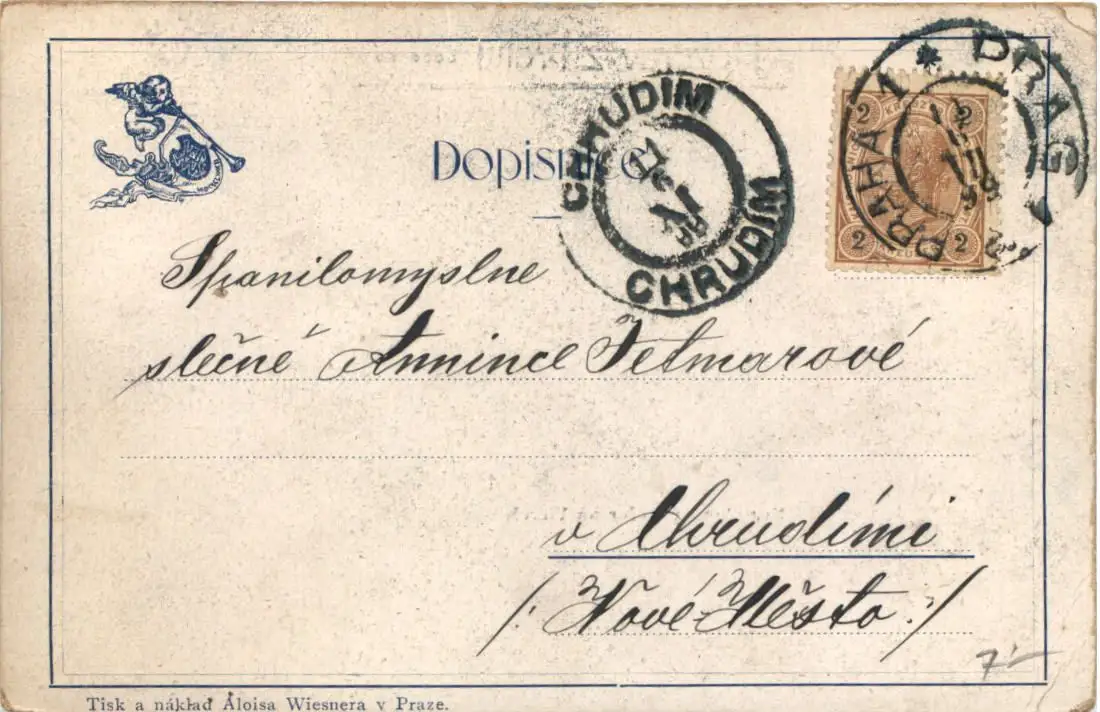 Dopisnice
CHRUDIM
11
XI
98
CHRUDIM
PRAHA 1 * PRAG
2 2
2 2
Spanilomyslne
slečně Annince Jetmarové
v Chrudimi
/: Nové Město :/
7'-
Tisk a náklad Aloisa Wiesnera v Praze.